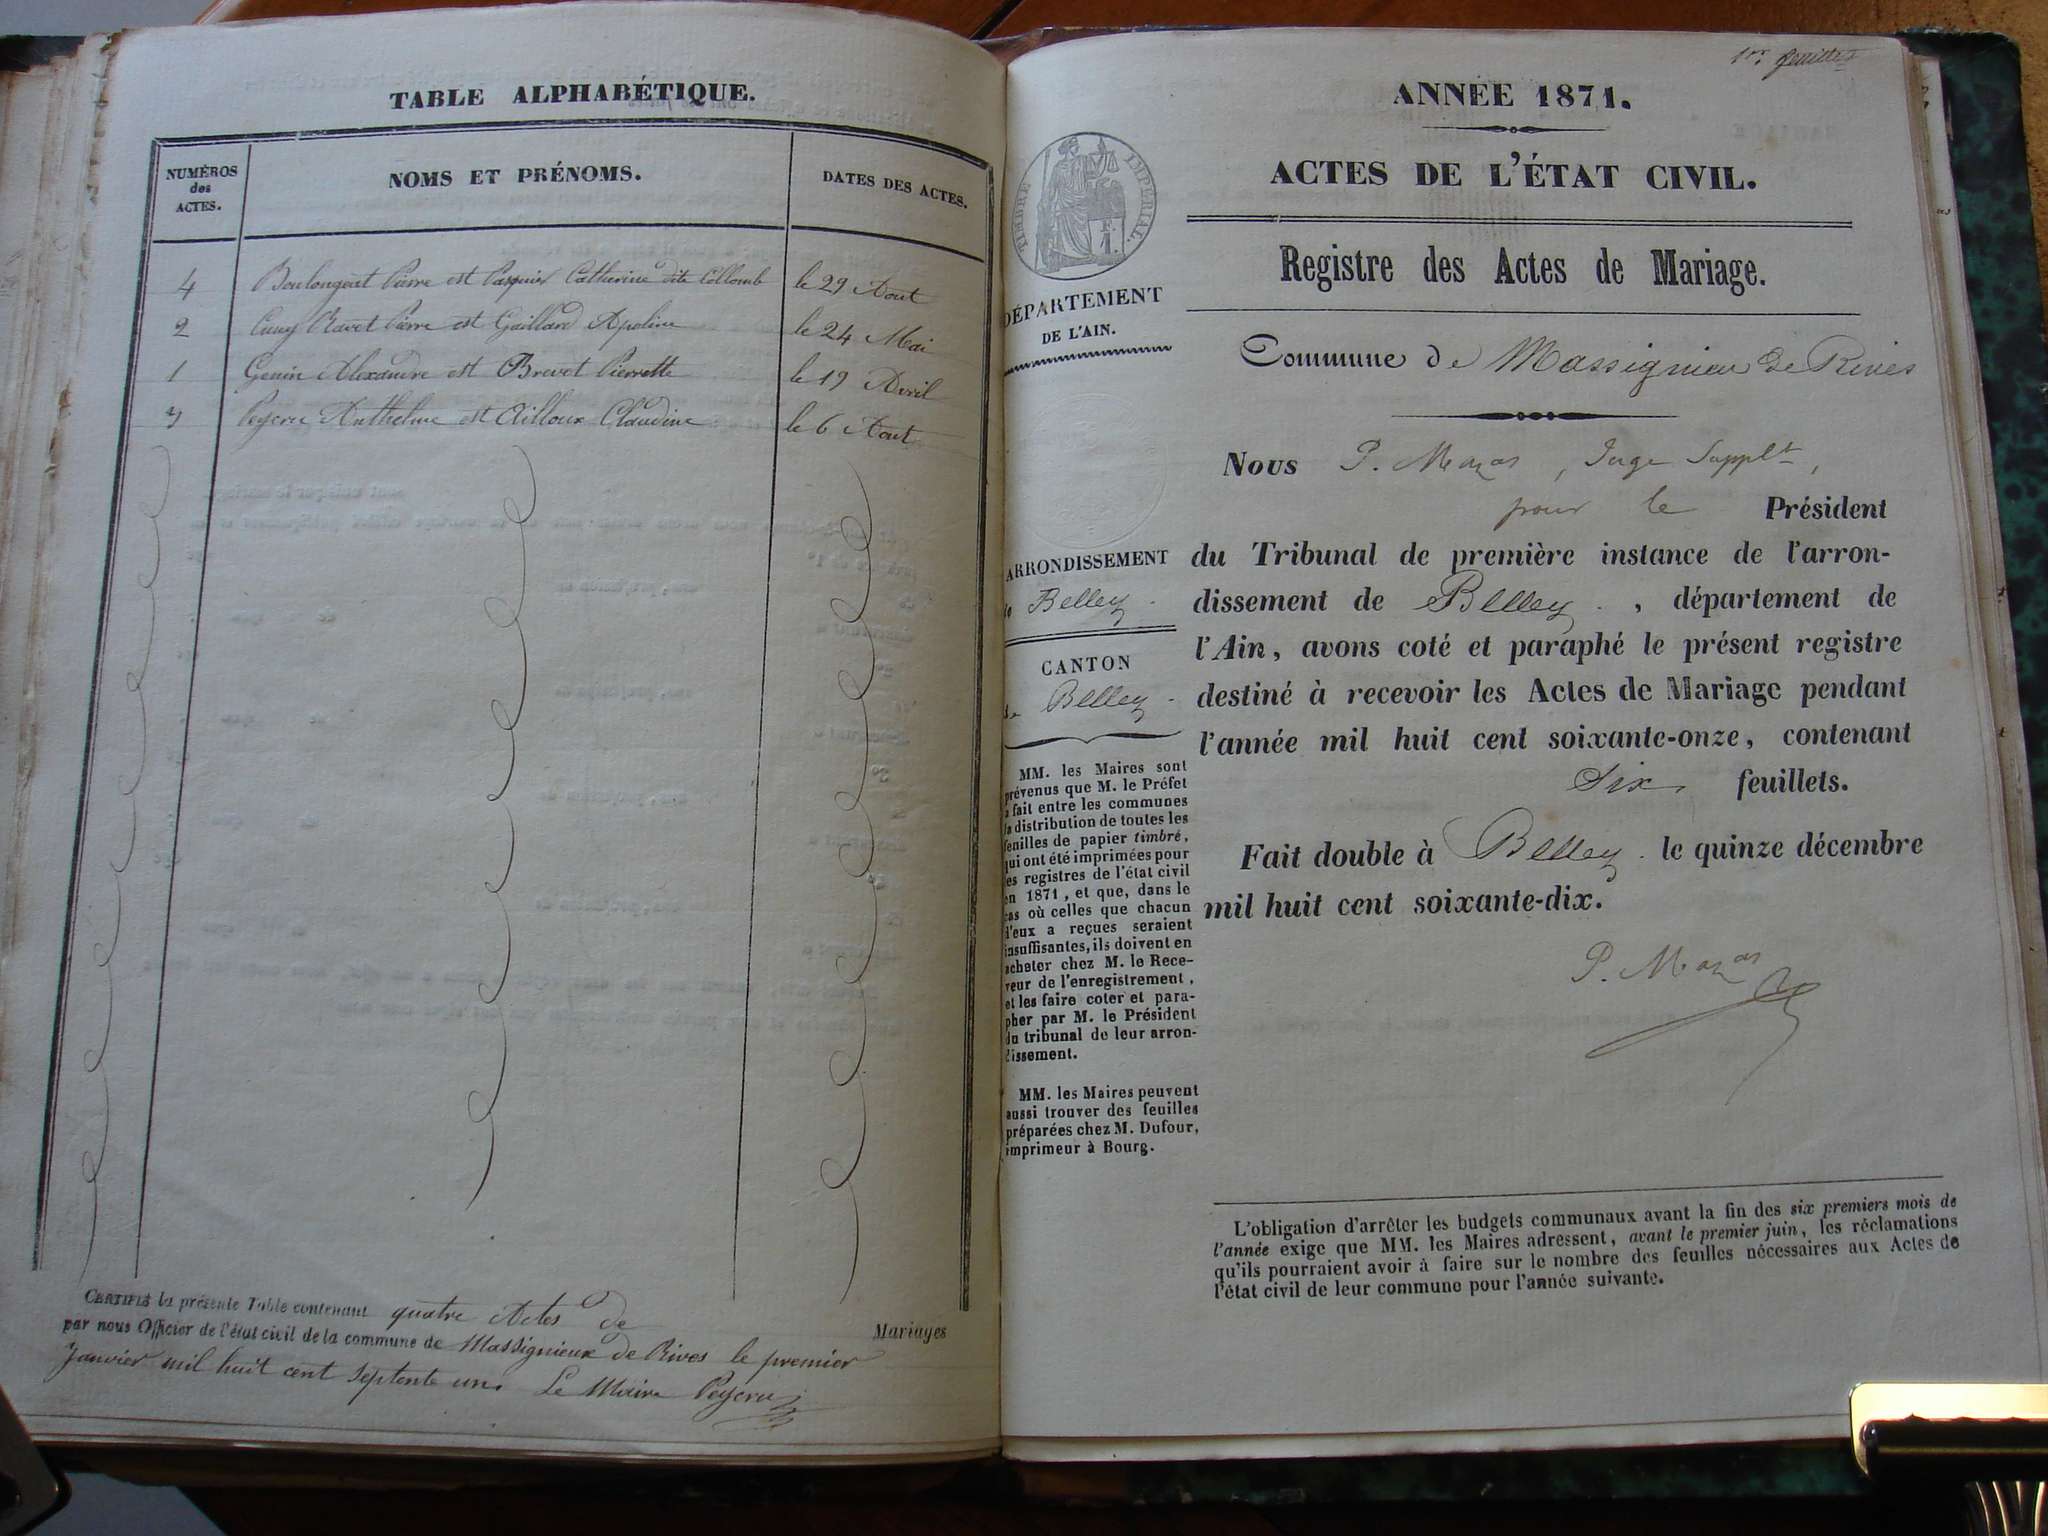 TABLE ALPHABÉTIQUE.
NUMÉROS
des
ACTES.
NOMS ET PRÉNOMS.
DATES DES ACTES.
4 Boulongeat Pierre et Pasquin Catherine dite Collomb le 29 Aout
2 Cuny Ravet Pierre et Gaillard Apoline le 24 Mai
1 Genin Alexandre et Brevet Pierrette le 19 Avril
3 Peycru Anthelme et Ailloux Claudine le 6 Aout
CERTIFIÉ la présente Table contenant quatre Actes de Mariages
par nous Officier de l'état civil de la commune de Massignieux de Rives le premier
Janvier mil huit cent septente un. Le Maire Peycru
1er feuillet
ANNÉE 1871.
ACTES DE L'ÉTAT CIVIL.
TIMBRE IMPÉRIAL.
Registre des Actes de Mariage.
DÉPARTEMENT
DE L'AIN.
Commune de Massignieu de Rives
Nous P. Mazas, Juge Supplt,
pour le Président
du Tribunal de première instance de l'arron-
dissement de Belley, département de
l'Ain, avons coté et paraphé le présent registre
destiné à recevoir les Actes de Mariage pendant
l'année mil huit cent soixante-onze, contenant
six feuillets.
Fait double à Belley. le quinze décembre
mil huit cent soixante-dix.
P. Mazas
ARRONDISSEMENT
de Belley.
CANTON
de Belley.
MM. les Maires sont
prévenus que M. le Préfet
a fait entre les communes
la distribution de toutes les
feuilles de papier timbré,
qui ont été imprimées pour
les registres de l'état civil
en 1871, et que, dans le
cas où celles que chacun
d'eux a reçues seraient
insuffisantes, ils doivent en
acheter chez M. le Rece-
veur de l'enregistrement,
et les faire coter et para-
pher par M. le Président
du tribunal de leur arron-
dissement.
MM. les Maires peuvent
aussi trouver des feuilles
préparées chez M. Dufour,
imprimeur à Bourg.
L'obligation d'arrêter les budgets communaux avant la fin des six premiers mois de
l'année exige que MM. les Maires adressent, avant le premier juin, les réclamations
qu'ils pourraient avoir à faire sur le nombre des feuilles nécessaires aux Actes de
l'état civil de leur commune pour l'année suivante.